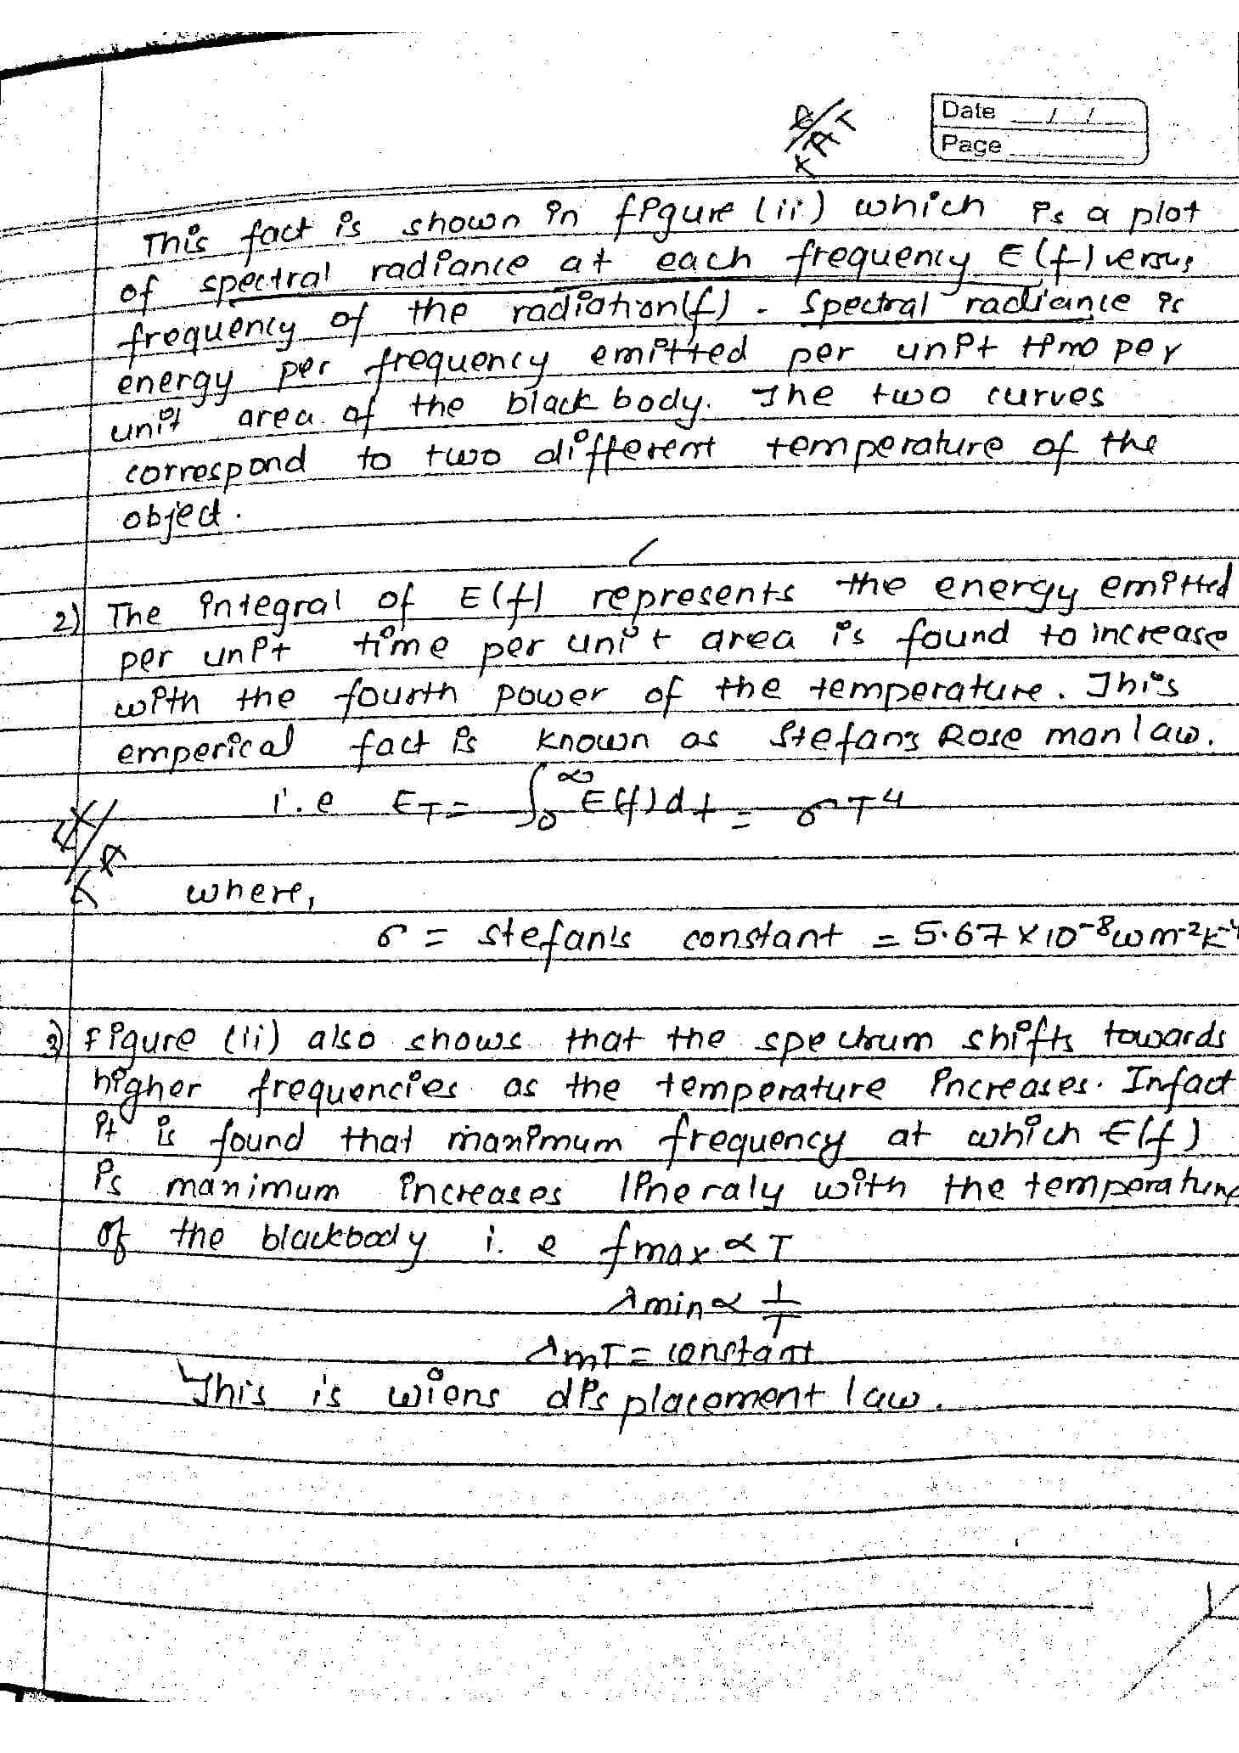 Date / /
Page
This fact is shown in figure (ii) which is a plot
of spectral radiance at each frequency E(f) versus
frequency of the radiation(f). Spectral radiance is
energy per frequency emitted per unit time per
unit area of the black body. The two curves
correspond to two different temperature of the
object.
2) The integral of E(f) represents the energy emitted
per unit time per unit area is found to increase
with the fourth power of the temperature. This
emperical fact is known as Stefans Rose man law.
i.e E_T = ∫₀^∞ E(f)df = σT⁴
where,
σ = stefan's constant = 5.67 × 10⁻⁸ w m⁻² k⁻⁴
3) figure (ii) also shows that the spectrum shifts towards
higher frequencies as the temperature increases. Infact
it is found that maximum frequency at which E(f)
is maximum increases lineraly with the temperature
of the blackbody i.e fmax ∝ T
λmin ∝ 1/T
λmT = constant
This is wiens displacement law.